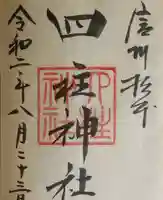 信州松本
四柱神社
令和二年八月二十三日